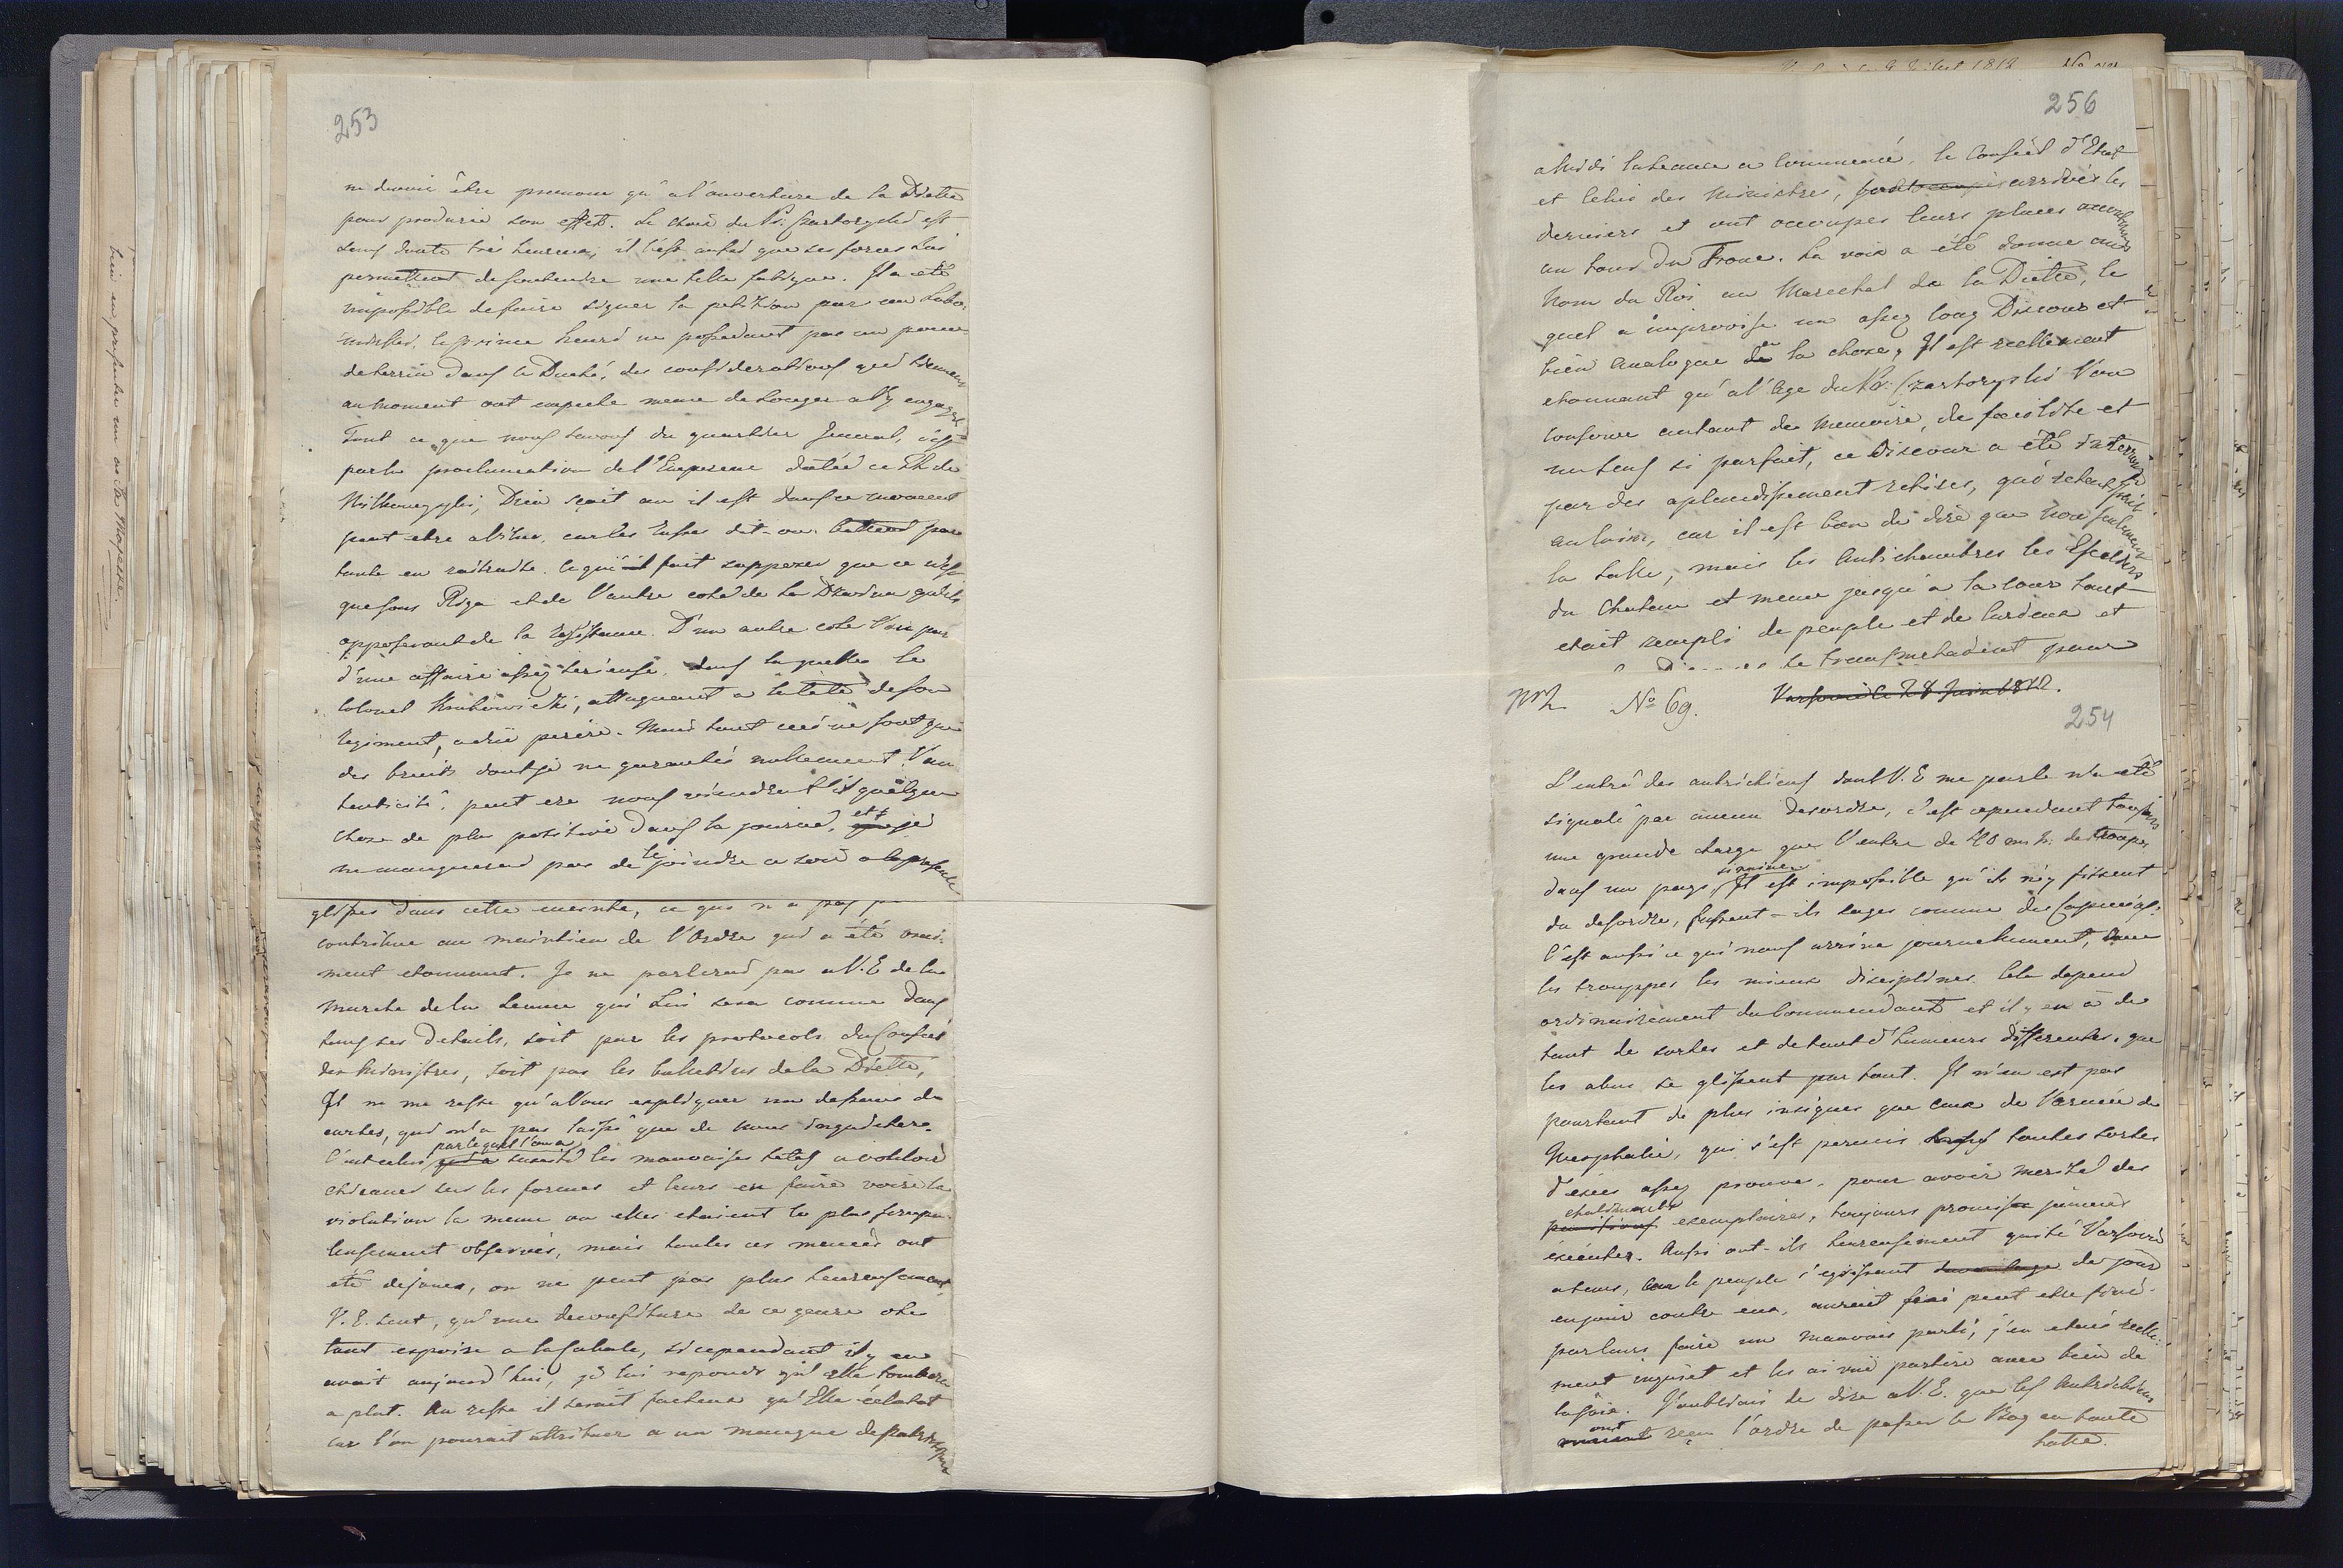 253
ne devoit être prononcé qu'à l'ouverture de la Diette
pour produire son effet. Le choix du Pr: Czartoryski est
sans doute très heureux, il l'est aussi que ses forces lui
permettent de soutenir une telle fatigue. Il a été
impossible de faire signer la petition par un Lubo-
mirski, le prince Henri ne possedant pas un pouce
de terrein dans le Duché, des considerations qui tiennent
au moment ont empeché meme de songer a l'y engager
Tout ce que nous savons du quartier General, c'est
par la proclamation de l'Empereur datée ce de
Wilkowyszki, Dieu sçait ou il est dans ce moment
peut etre a Vilna, car les Russes dit-on battend par
toute en retraite. ce qui fait supposer que ce n'est
que sous Riga et de l'autre coté de la Dzwina qu'ils
opposeront de la resistance. D'un autre coté l'on parle
d'une affaire assez serieuse, dans laquelle le
Colonel, attaquant a la tete de son
regiment, a du perire. Mais tout ceci ne sont que
des bruits dont je ne garantis nullement l'au
tenticité. peut etre nous viendrat il quelque
chose de plus positive dans la journée, et je
ne manquerai pas de le joindre ce soir a la presente
glissés dans cette enceinte, ce qui n'a pas
contribué au maintien de l'ordre qui a été vrai-
ment etonnant. Je ne parlerai pas a V.E de la
marche de la seance qui lui sera connue dans
tous ses details, soit par les protocols du Conseil
des Ministres, soit par les bulletins de la Diette,
Il ne me reste qu'a Vous expliquer un dessous de
cartes, qui n'a pas laissé que de nous inquieter.
C'est celui par lequel l'on a suscité les mauvaises tetes a vouloir
chicaner sur les formes et leurs en faire voire la
violation la meme ou elles etaient le plus scrupu-
leusement observées, mais toutes ces menées ont
été dejouées, on ne peut pas plus heureusement,
V. E. sent, qu'une deconfiture de ce genre ote
tout espoire a la Cabale, si cependant il y en
avait aujourd'hui, je lui reponds qu'elle tombera
a plat. Au reste il serait facheux qu'Elle éclatat
car l'on pourait attribuer a un manque de patriotisme
256
a Midi la seance a commencé, le Conseil d'Etat
et celui des Ministres, arrivés les
derniers et ont occupés leurs places accoutumés
au tour du Trone. La voix a été donné au
Nom du Roi au Marechal de la Diette, le
quel a improvisé un assez long Discour et
bien analogue a la chose, Il est reellement
etonnant qu'a l'age du Pr: Czartoryski l'on
conserve autant de memoire, de facilité et
un sens si parfait, ce discour a été interrompu
par des aplaudissement reitirés, qui retentissait
au loin, car il est bon de dire que non seulement
la salle, mais les Antichambres les Escaliers
du Chateau et meme jusqu'a la cour tout
etait rempli de peuple et de curieux et
se transmetaient pour
No 69. Varsovie le 28 Juin 1812.
254
L'entré des autrichiens dont V.E me parle n'a été
signalé par aucun desordre, c'est cependant toujours
une grande charge que l'entre de 40 m. h. de troupes
dans un pays, Il est impossible qu'ils n'y fissent
du desordre, fussent-ils sages comme des Capucins:
C'est aussi ce qui nous arrive journelement, avec
les trouppes les mieux disciplinés. Cela depend
ordinairement du Commendant et il y en a de
tant de sortes et de tant d'humeurs differentes, que
les abus se glissent par tout. Il n'en est pas
pourtant de plus insignes que ceux de l'armée de
Wesphalie, qui s'est permis toutes sortes
d'exces assez prouvés, pour avoir merité des
chatiments
punitions exemplaires, toujours promises jamais
éxecutés. Aussi ont-ils heureusement quité Varsovie
a tems, car le peuple s'egrissant davantage de jour
en jour contre eux, aurait peut etre fini
par leurs faire un mauvais parti, j'en etais reelle-
ment inquiet et les ai vû partire avec bien de
la joie. J'oubliais de dire a V.E. que les Autrichiens
ont reçu l'ordre de passer le Bog en toute
hatte.